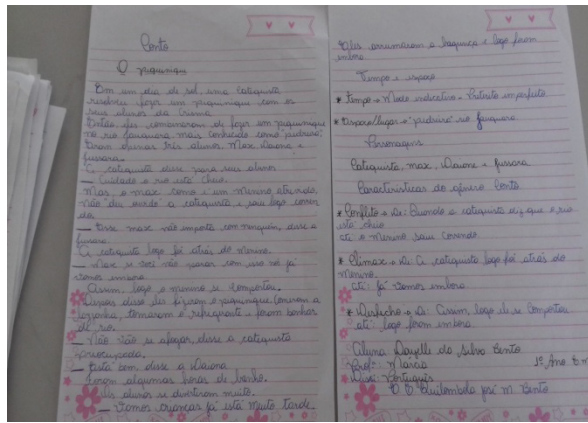 Conto
O piquinique
Em um dia de sol, uma catequista
resolveu fazer um piquinique com os
seus alunos da Crisma.
Então eles combinaram de fazer um piquinique
no rio mais conhecido como "pedreira".
Foram apenas três alunos, Max, Daiane e
A catequista disse para seus alunos
— Cuidado o rio está cheio.
Mas, o max como é um menino atentado,
não "deu ouvido" a catequista e saiu logo corren
do.
— Esse max não importa com ninguém, disse a
A catequista logo foi atrás do menino.
— Max se você não parar com isso nós já
vamos embora
Assim, logo o menino se comportou.
Depois disso eles fizeram o piquinique comeram a
tomaram o refrigerante e foram banhar
de rio.
— Não vão se afogar, disse a catequista
preocupada.
— Está bem disse a Daiane
Foram algumas horas de banho.
Os alunos se divertiram muito.
— Vamos crianças já está muito tarde.
Eles arrumaram a bagunça e logo foram
embora
Tempo e espaço
* Tempo → Modo indicativo - Pretérito imperfeito
* Espaço/lugar → "pedreira" rio
Personagens
Catequista, max, Daiane e
Características do gênero Conto
* Conflito → De: Quando a catequista diz que o rio
está cheio
até o menino saiu correndo
* Clímax → De: A catequista logo foi atrás do
menino.
até: já vamos embora
* Desfecho → De: Assim, logo ele se comportou
até: logo foram embora
da Silva Bento
Prof: Marcia
1º Ano E m
Português
Quilombola José M. Bento